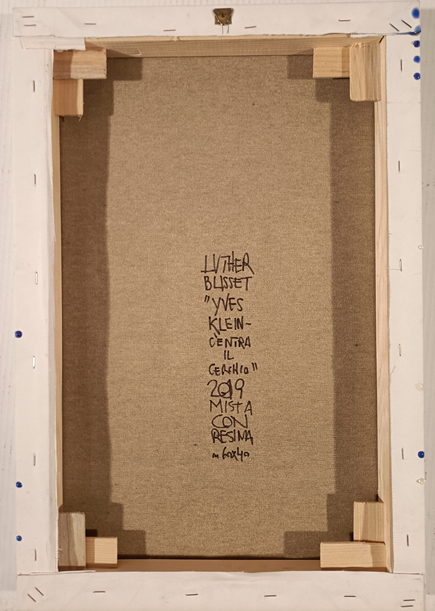 LUTHER
BLISSET
"YVES
KLEIN-
C'ENTRA
IL
CERCHIO"
2019
MISTA
CON
RESINA
m 60x40